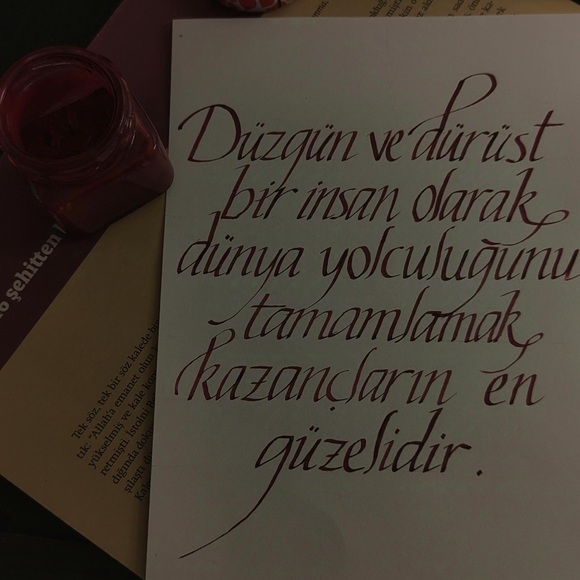 Düzgün ve dürüst
bir insan olarak
dünya yolculuğunu
tamamlamak
kazançların en
güzelidir.
şehitten
Tek söz, tek bir söz kalede
tık: "Allah'a emanet olun
yükselmiş ve kale
retmişti. İstolni
dığında